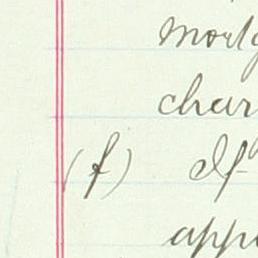 mortg
char
(f) If
appe